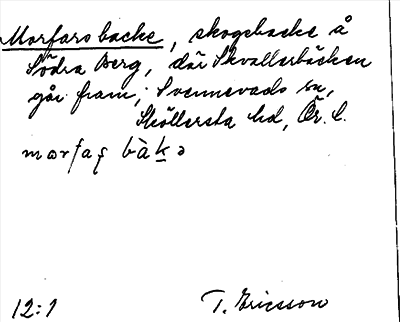 Morfars backe, skogsbacke å
Södra Berg, där Skvallerbäcken
går fram; Svennevads sn,
Sköllersta hd, Ör. l.
morfaʂ bàkə
12:1 T. Ericsson